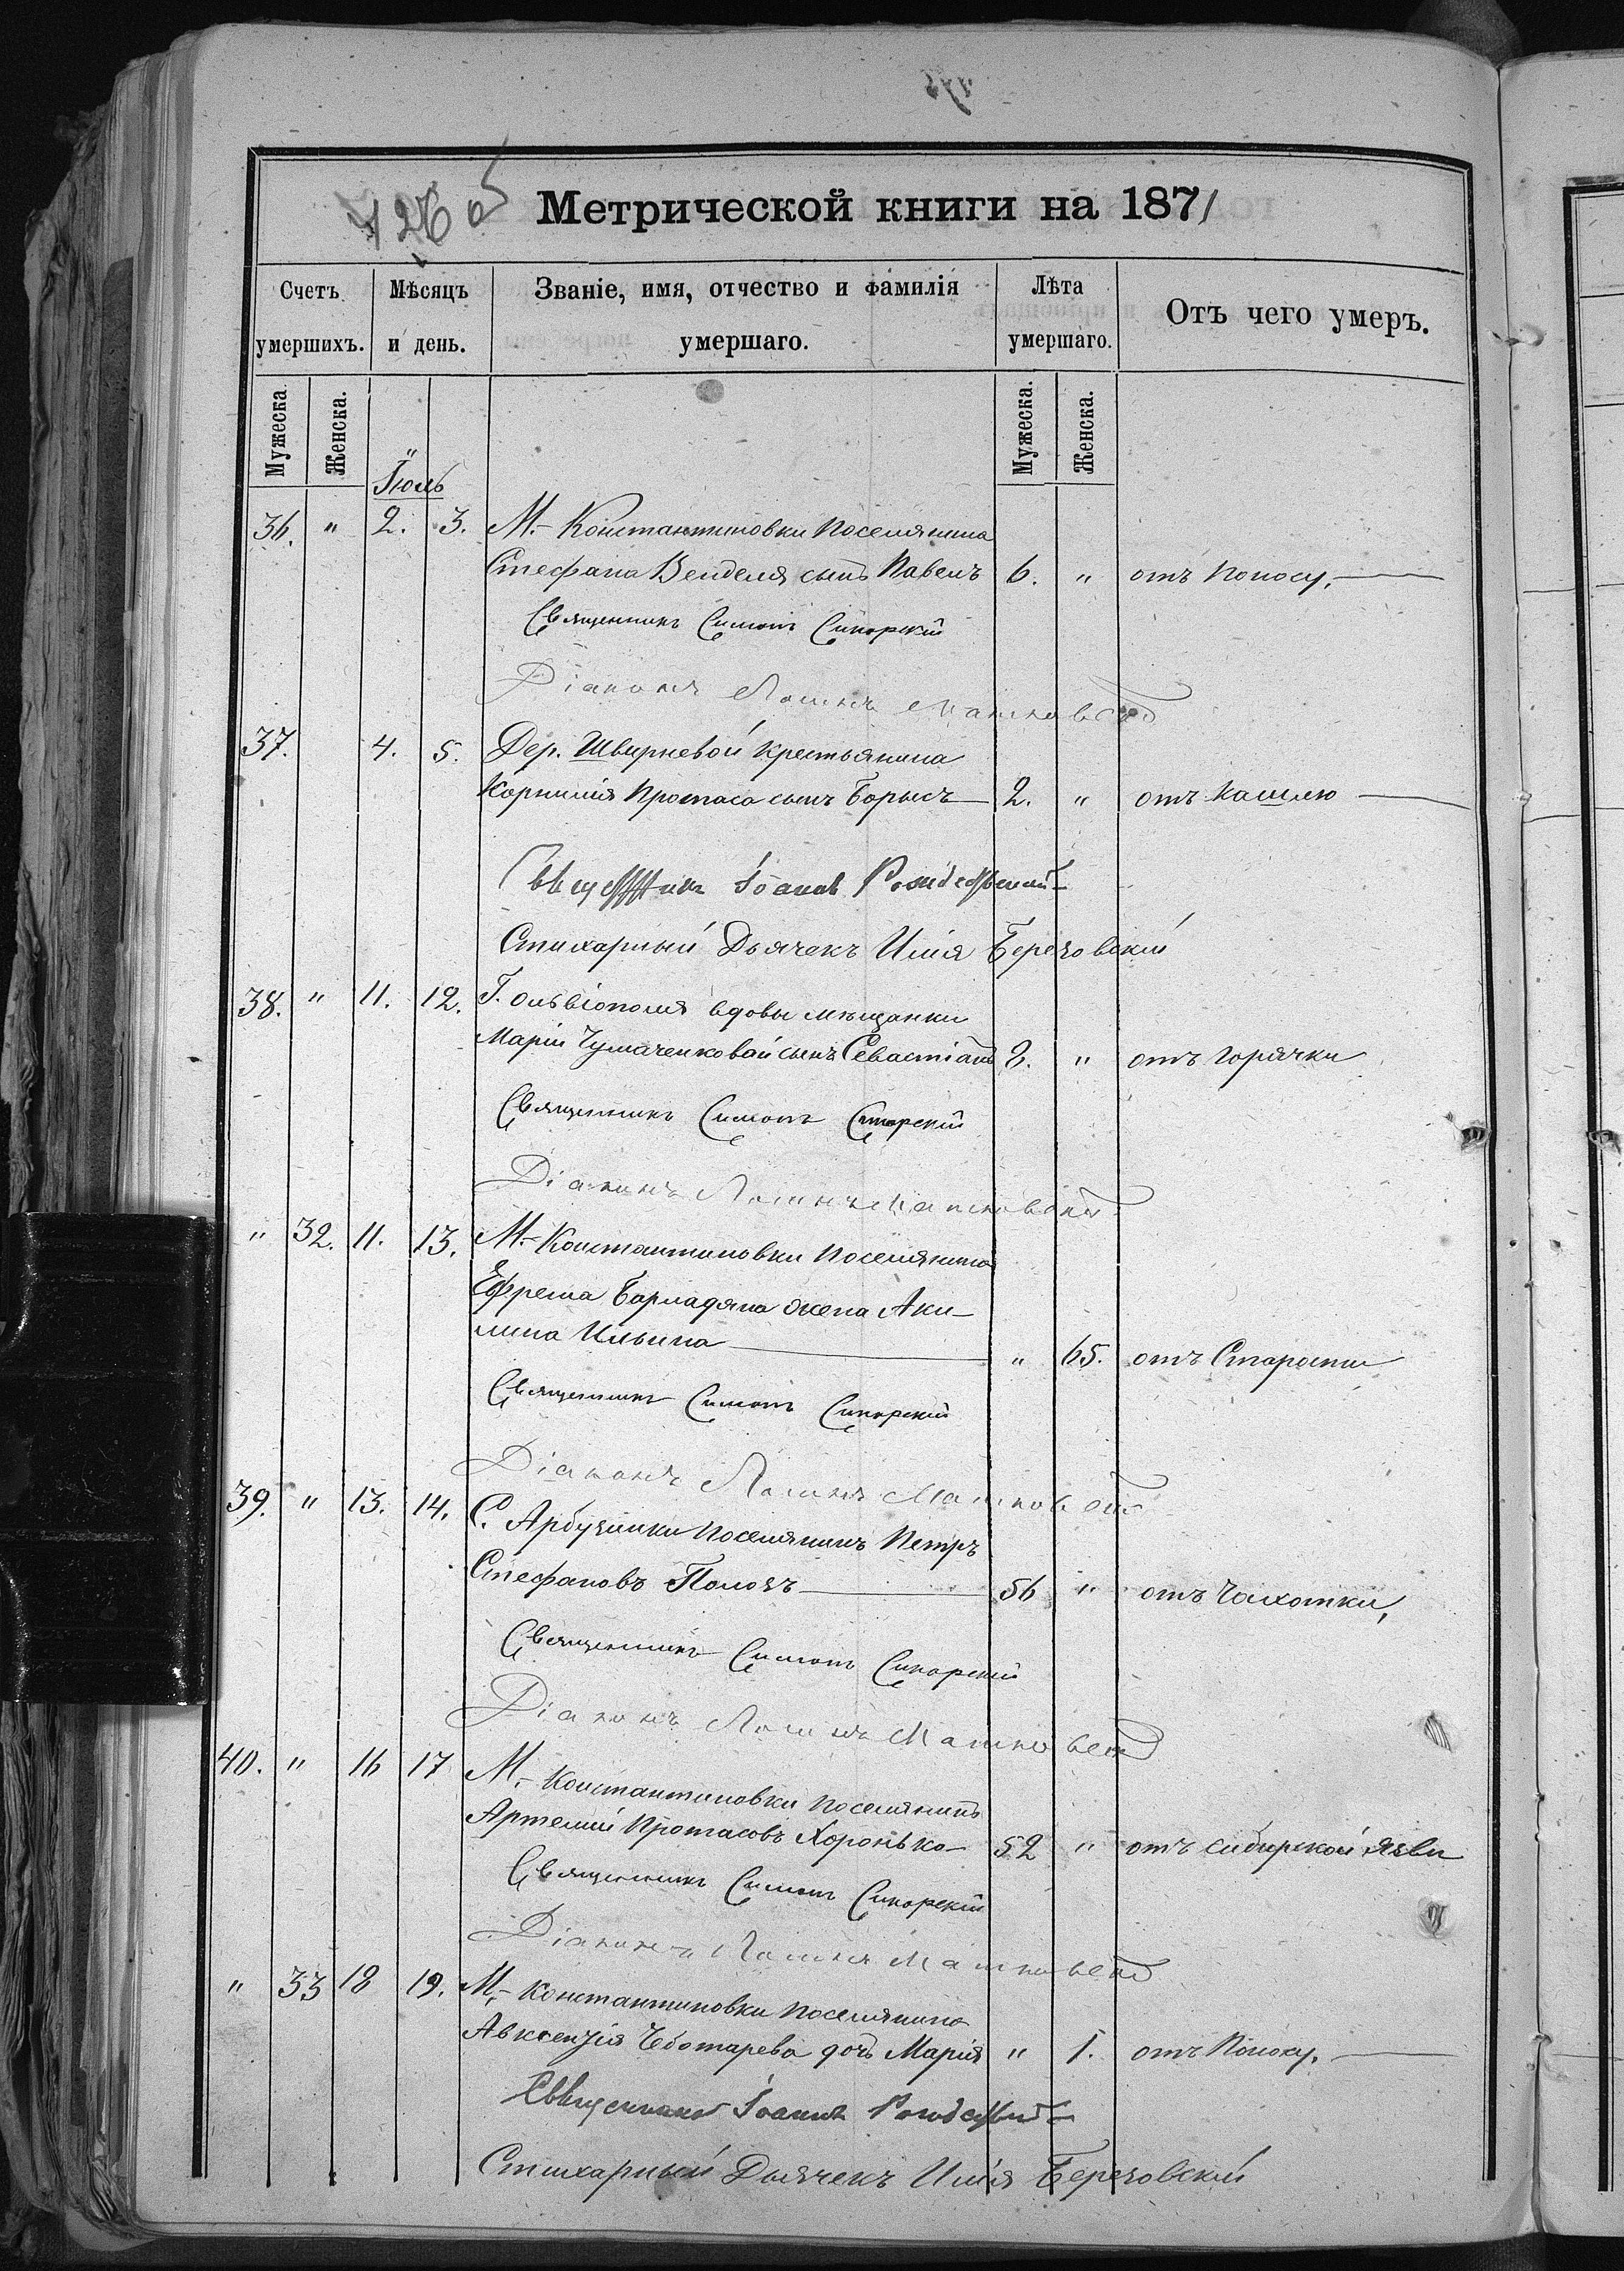 Метрической книги на 1871
Счетъ умершихъ.
Мѣсяцъ и день.
Званіе, имя, отчество и фамилія умершаго.
Лѣта умершаго.
Отъ чего умеръ.
Мужеска. Женска.
Мужеска. Женска.
Іюль
36. " 2. 3. М.- Константиновки поселянина
Стефана Венделя сынъ Павелъ 6. " отъ поносу,
Священникъ Симонъ Сикорскій
Діаконъ
37. 4. 5. Дер. Швирневой крестьянина
Корнилія Протаса сынъ Борисъ 2. " отъ кашлю
Священникъ Іоаннъ Рождественскій
Стихарный Дьячекъ Илія Березовскій
38. " 11. 12. Г. Ольвіополя вдовы мѣщанки
Маріи Чумаченковой сынъ Севастіанъ 2. " отъ горячки
Священникъ Симонъ Сикорскій
Діаконъ
" 32. 11. 13. М.- Константиновки поселянина
Ефрема Барладяна жена Аки-
лина Ильина " 65. отъ Старости
Священникъ Симонъ Сикорскій
Діаконъ
39. " 13. 14. С. Арбузинки поселянинъ Петръ
Стефановъ 56 " отъ Чахотки,
Священникъ Симонъ Сикорскій
Діаконъ
40. " 16 17 М.- Константиновки поселянинъ
Артемій Протасовъ Хоронько 52 " отъ сибирской язвы
Священникъ Симонъ Сикорскій
Діаконъ
" 33 18 19. М.- Константиновки поселянина
Авксентія Чеботарева дочь Марія " 1. отъ поносу,
Священникъ Іоаннъ Рождественскій
Стихарный Дьячекъ Илія Березовскій